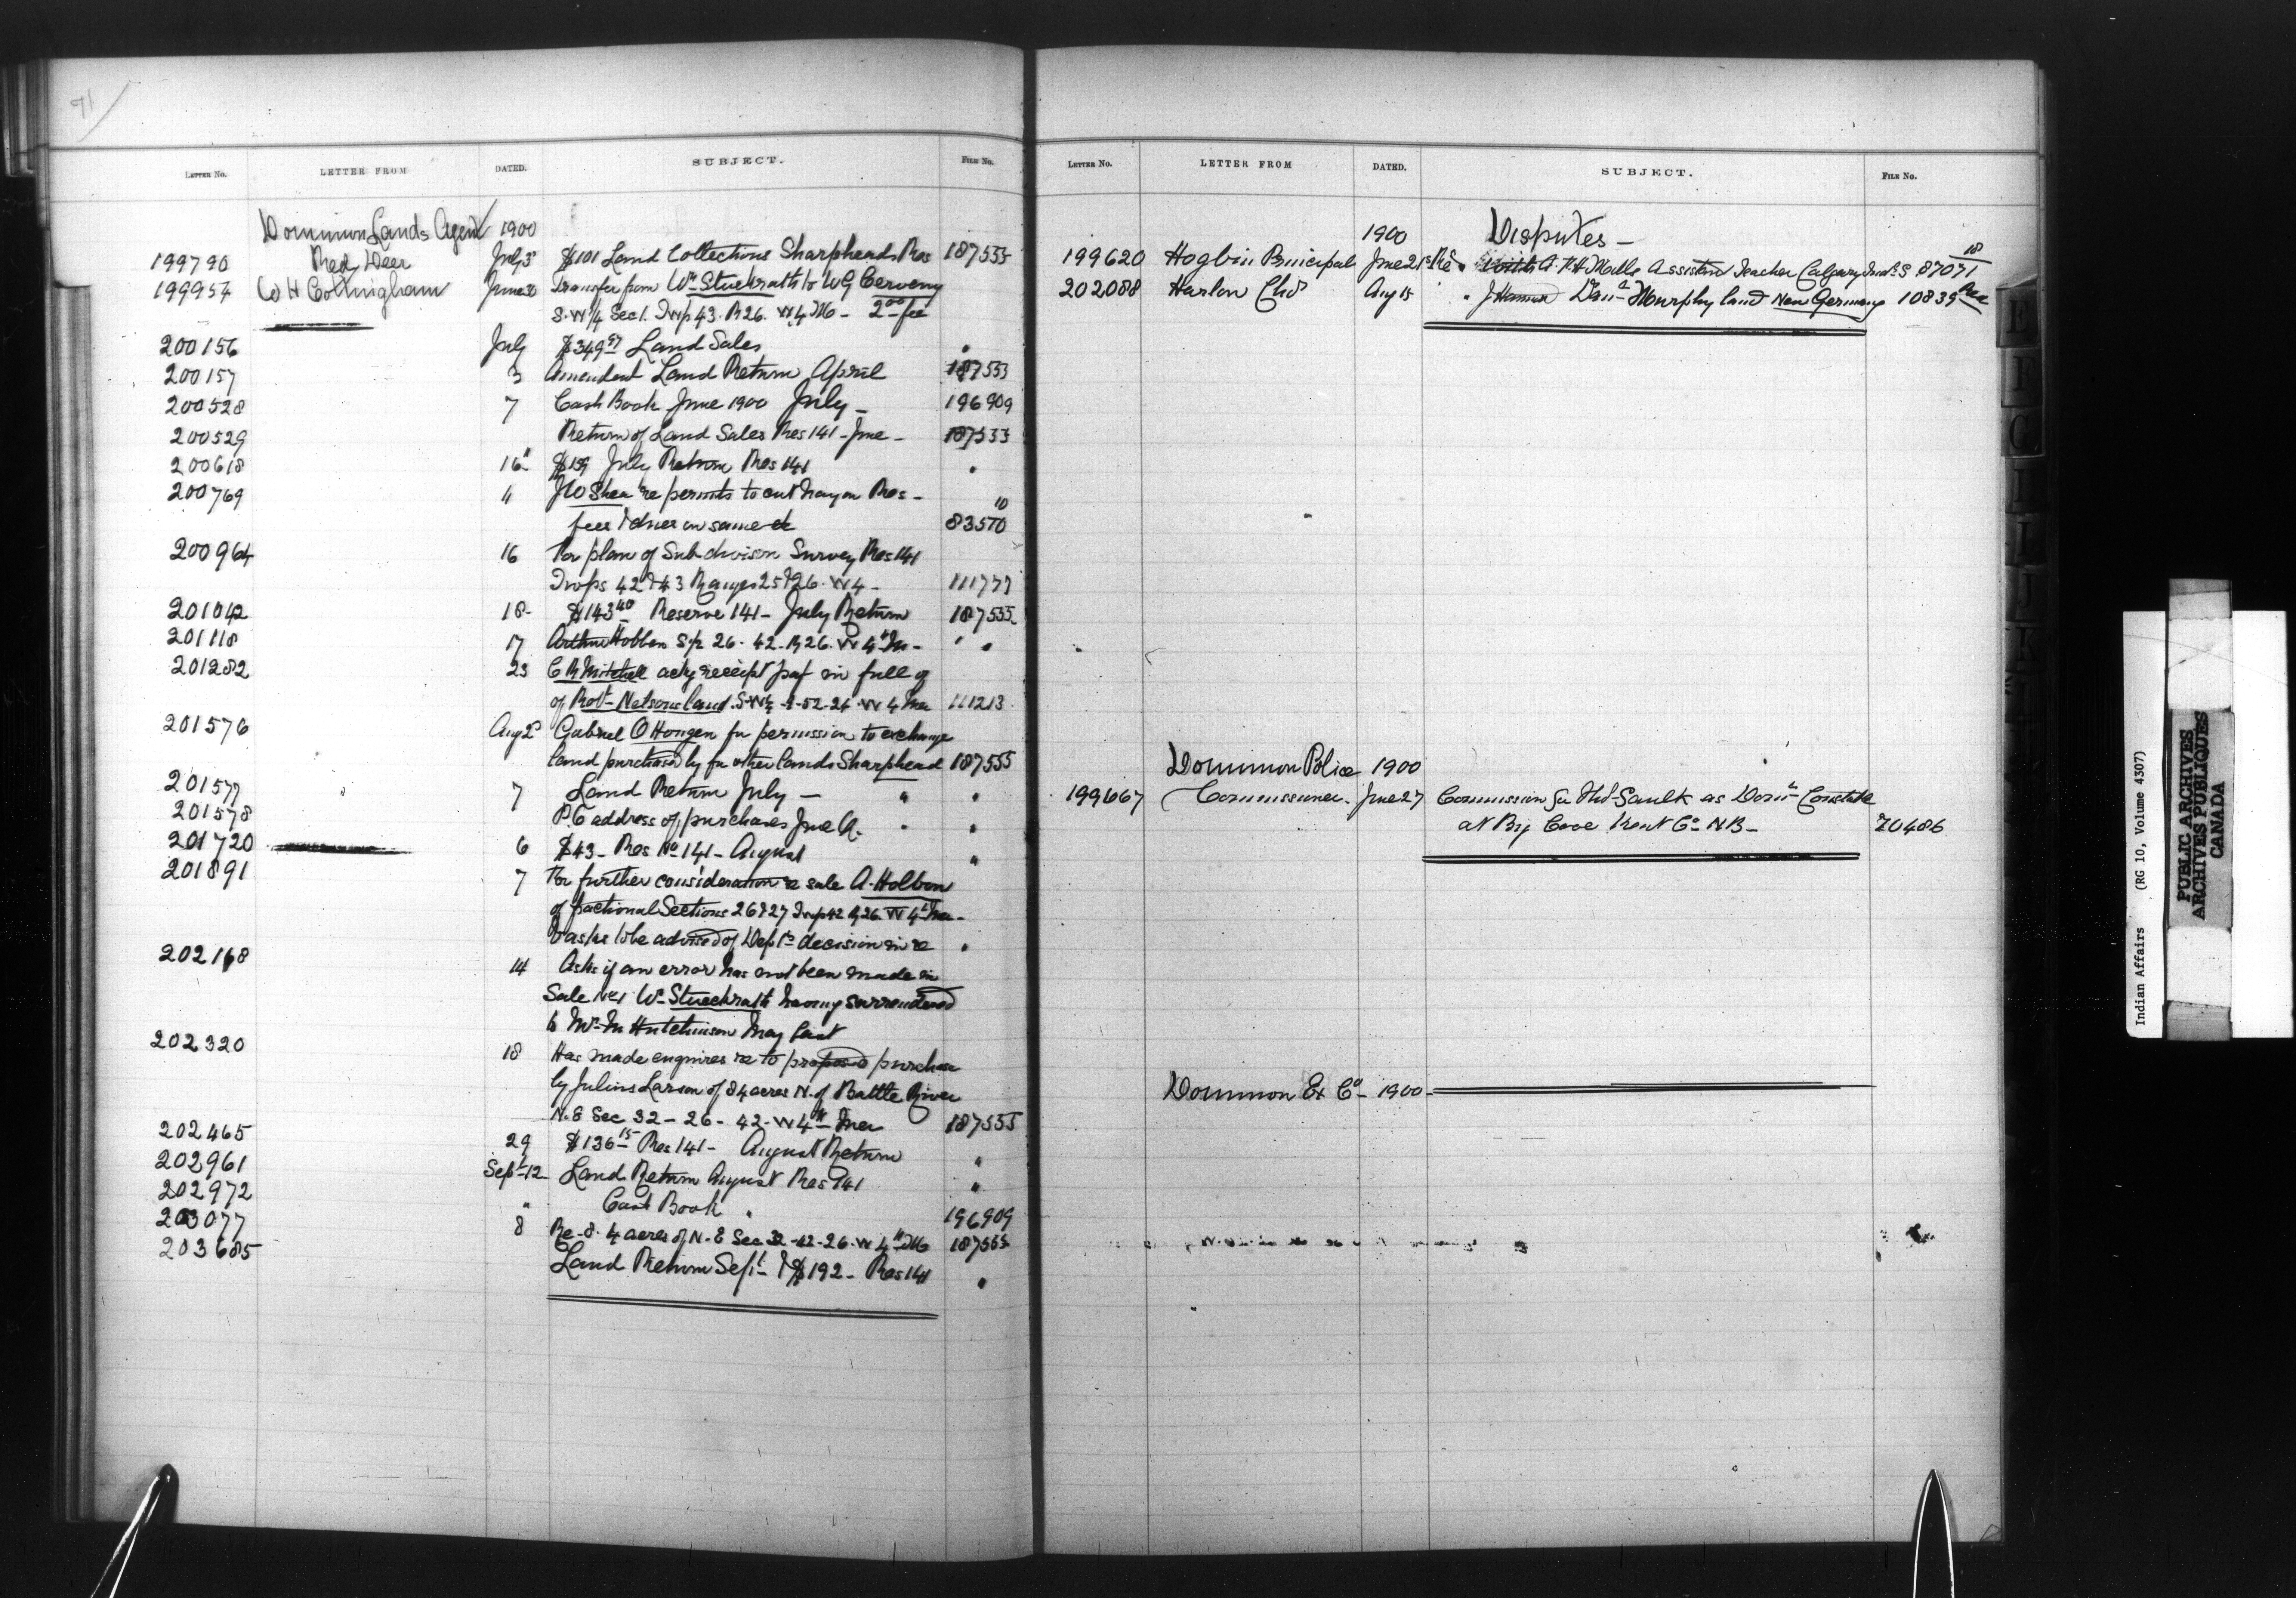 91
LETTER NO. LETTER FROM DATED. SUBJECT. FILE NO.
Dominion Lands Agent 1900
199790 Red Deer July 3 $101 Land Collections Sharpheads Res 187535
199954 W H Cottingham June 30 Transfer from Wm Stuckrath to W G Cerveny
S.W 1/4 Sec 1. Twp 43. R 26. W 4 M - 2.00 fee
200156 July $349 Land Sales "
200157 3 Amended Land Return April 187533
200528 7 Cash Book June 1900 July - 196909
200529 Return of Land Sales Res 141 - June - 187533
200618 16 $159 July Return Res 141 "
200769 " J W Shea re permits to cut hay on Res - 10
fees & dues on same &c 83570
200964 16 For plan of Subdivison Survey Res 141
Twps 42 & 43 Ranges 25 & 26. W 4 - 111777
201042 18 - $143.40 Reserve 141 - July Return 187535
201118 17 Arthur Holben S/2 26 - 42 - R 26. W 4th M - " "
201282 23 C R Mitchell receipt in full of
of Robt Nelsons land 52 - 24 - W 4 Mer 111213
201576 Aug 2 Gabriel O Hongen for permission to exchange
land purchased by for other lands Sharphead 187535
201577 7 Land Return July - " "
201578 P.O address of purchases June " "
201720 6 $43 - Res No 141 - August "
201891 7 For further consideration re sale A. Holben
of fractional Sections 26 & 27 Twp 42 R 26 W 4th Mer -
& asks to be advised of Dept's decision in re "
202168 14 Asks if an error has not been made in
Sale No 1 Wm Stueckrath having surrendered
to Mr M Hutchinson May last
202320 18 Has made enquires re to proposed purchase
by Julius Larson of 84 acres N. of Battle River
N. E Sec 32 - 26 - 42 - W 4th Mer 187535
202465 29 $136.15 Res 141 - August Return "
202961 Sept 12 Land Return August Res 141 "
202972 " Cash Book " 196909
203077 8 Re 8. 4 acres of N. E Sec 32 - 42 - 26 - W 4th M 187535
203685 Land Return Sept & $192 - Res 141 "
LETTER NO. LETTER FROM DATED. SUBJECT. FILE NO.
1900 Disputes -
199620 Hogbin Principal June 21 Re Mills Assistant Teacher Calgary Indl S 87071 18
202088 Harlon Chas Aug 15 " Murphy land New Germany 10835
Dominion Police 1900
199667 Commissioner - June 27 Commission for as Domn Constable
at Big Cove Kent Co N B - 70486
Dominion Ex Co - 1900 -
E
F
G
I
J
K
L
Indian Affairs (RG 10, Volume 4307)
PUBLIC ARCHIVES
ARCHIVES PUBLIQUES
CANADA